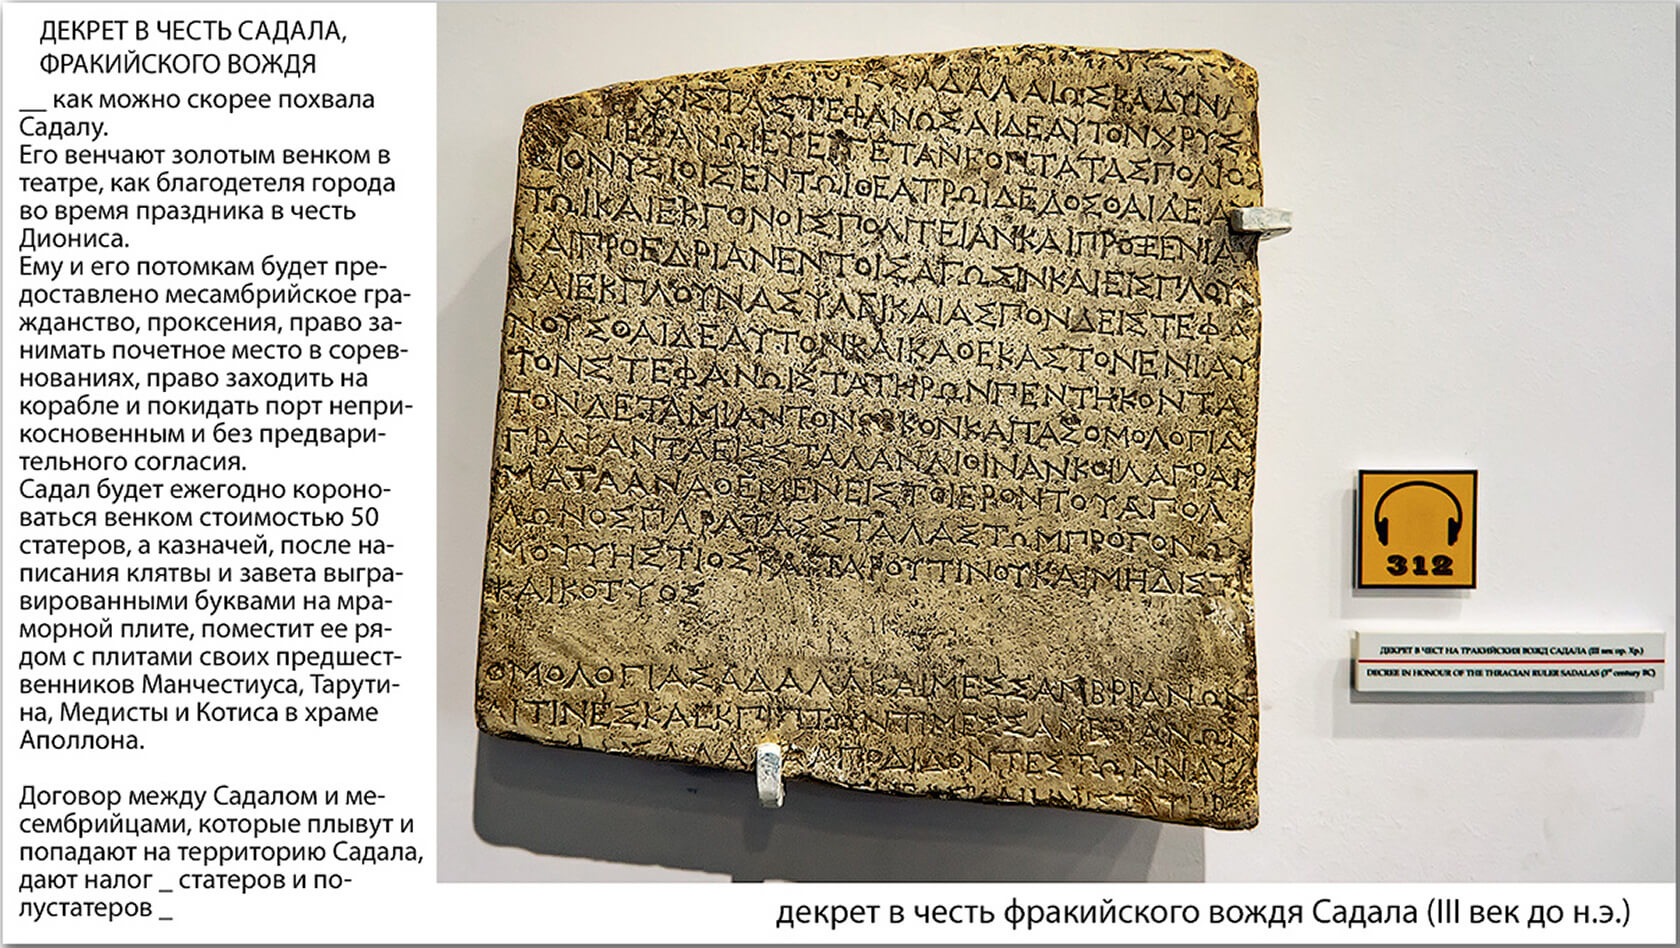 ДЕКРЕТ В ЧЕСТЬ САДАЛА,
ФРАКИЙСКОГО ВОЖДЯ
__ как можно скорее похвала
Садалу.
Его венчают золотым венком в
театре, как благодетеля города
во время праздника в честь
Диониса.
Ему и его потомкам будет пре-
доставлено месамбрийское гра-
жданство, проксения, право за-
нимать почетное место в сорев-
нованиях, право заходить на
корабле и покидать порт непри-
косновенным и без предвари-
тельного согласия.
Садал будет ежегодно короно-
ваться венком стоимостью 50
статеров, а казначей, после на-
писания клятвы и завета выгра-
вированными буквами на мра-
морной плите, поместит ее ря-
дом с плитами своих предшест-
венников Манчестиуса, Тарути-
на, Медисты и Котиса в храме
Аполлона.
Договор между Садалом и ме-
сембрийцами, которые плывут и
попадают на территорию Садала,
дают налог _ статеров и по-
лустатеров _
ΣΑΔΑΛΑΙΩΣΚΑΔΥΝΑ
ΧΙΣΤΑΣΤΕΦΑΝΩΣΑΙΔΕΑΥΤΟΝΧΡΥΣ
ΤΕΦΑΝΩΙΕΥΕΡΓΕΤΑΝΕΟΝΤΑΤΑΣΠΟΛΙΟ
ΙΟΝΥΣΙΟΙΣΕΝΤΩΙΘΕΑΤΡΩΙΔΕΔΟΣΘΑΙΔΕΑΥ
ΤΩΙΚΑΙΕΚΓΟΝΟΙΣΠΟΛΙΤΕΙΑΝΚΑΙΠΡΟΞΕΝΙΑΝ
ΚΑΙΠΡΟΕΔΡΙΑΝΕΝΤΟΙΣΑΓΩΣΙΝΚΑΙΕΙΣΠΛΟΥΝ
ΚΑΙΕΚΠΛΟΥΝΑΣΥΛΕΙΚΑΙΑΣΠΟΝΔΕΙΣΤΕΦΑ
ΝΟΥΣΘΑΙΔΕΑΥΤΟΝΚΑΙΚΑΘΕΚΑΣΤΟΝΕΝΙΑΥ
ΤΟΝΣΤΕΦΑΝΩΙΣΤΑΤΗΡΩΝΠΕΝΤΗΚΟΝΤΑ
ΤΟΝΔΕΤΑΜΙΑΝΤΟΝΟΡΚΟΝΚΑΙΤΑΣΟΜΟΛΟΓΙΑΣ
ΓΡΑΨΑΝΤΑΕΙΣΣΤΑΛΑΝΛΙΘΙΝΑΝΚΟΙΛΑΓΡΑΜ
ΜΑΤΑΑΝΑΘΕΜΕΝΕΙΣΤΟΙΕΡΟΝΤΟΥΑΠΟΛ
ΛΩΝΟΣΠΑΡΑΤΑΣΣΤΑΛΑΣΤΩΜΠΡΟΓΟΝΩΝ
ΜΟΥΨΗΣΤΙΟΣΚΑΙΤΑΡΟΥΤΙΝΟΥΚΑΙΜΗΔΙΣΤΑ
ΚΑΙΚΟΤΥΟΣ
ΟΜΟΛΟΓΙΑΣΑΔΑΛΑΚΑΙΜΕΣΣΑΜΒΡΙΑΝΩΝ
ΑΙΤΙΝΕΣΚΑΕΚΠΙΠΤΩΝΤΙΜΕΣΣΑΜΒΡΙΑΝΩΝ
ΑΠΟΔΙΔΟΝΤΕΣΤΩΝΝΑΥ
312
ДЕКРЕТ В ЧЕСТ НА ТРАКИЙСКИЯ ВОЖД САДАЛА (III век пр. Хр.)
DECREE IN HONOUR OF THE THRACIAN RULER SADALAS (3rd century BC)
декрет в честь фракийского вождя Садала (III век до н.э.)